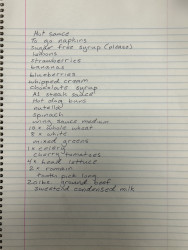 Hot sauce
To go napkins
Sugar free syrup (please)
lemons
strawberries
bananas
blueberries
whipped cream
chocolate syrup
A1 steak sauce
Hot dog buns
nutella
spinach
wing sauce medium
10x whole wheat
8x white
mixed greens
1x celery
cherry tomatoes
4x head lettuce
2x romain
tooth pick long
20lbs. ground beef
sweetend condensed milk